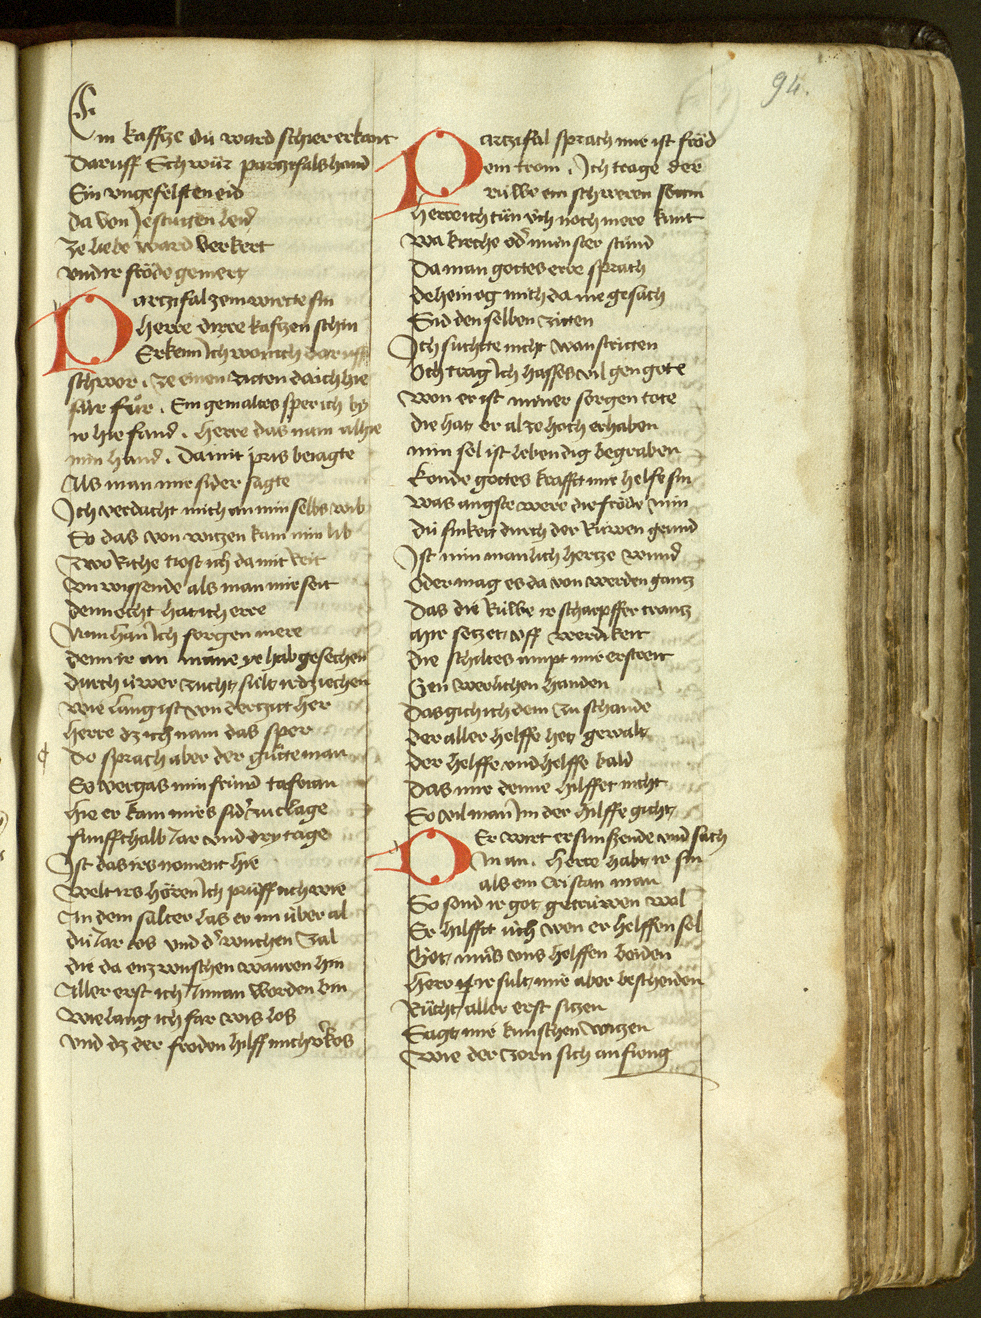 94.
Ein kaffze du ward schier erkant
Daruff Schwür partzifals hand
Ein vngefelsten eid
da von Jestutten leid
ze liebe ward verkert
vnd ir fröde gemert
Partzifal zem wirte sin
herre dirre kafzen schin
Erkenn Ich wonich daruff
schwor . ze einen zitten da ich hie
für für . Ein gemaltes sper ich by
ir hie fand . herre das nam alhie
min hand . Da mit pris beiagte
Als man mir sider sagte
Ich verdacht mich an min selbs wib
So das von witzen kam min lib
Zwo Riche tiost ich da mit Reit
Vn wissende als man mir seit
dennocht hat ich erre
Nun han Ich sorgen mere
denn ir an mane ye hab gesechen
durch üwer zucht sült ir dz iechen
wie lang ist von der zitt her
herre dz ich nam das sper
Do sprach aber der gutte man
So vergas min fründ tafrian
hie er kam mirs sid zu clage
funffthalb Jar vnd dry tage
Ist das irs noment hie
Welt irs hören Ich prüff uch wie
An dem salter las er im über al
du Jar los vnd d' wuchen zal
die da enzwuschen waren hin
Aller erst ich Jnnan worden bin
wie lang ich far wis los
vnd dz der froden hilff mich v'kos
Partzifal sprach mir ist fröd
ein trom . Ich trage der
rüwe ein schweren soum
herre ich tün üch noch mere kunt
wa kirche od' münster stund
Da man gottes ere sprach
dehein og mich da nie gesach
Sid den selben zitten
Ich suchte nicht wan stritten
Och trag Ich hasses vil gen gote
won er ist miner sorgen tote
die hat er al ze hoch erhaben
min sel ist lebendig begraben
konde gottes krafft mir helfe sin
was angste were die fröde min
du sinket durch der Ruwen grund
Ist min manlich hertze wund
Oder mag es da von werden gantz
Das die Rüwe ir scharpffer krantz
mir setzet vff werdikeit
die schiltes ampt mir erstreit
Gen werlichen handen
Das gich ich dem zu schande
der aller helffe het gewalt
der helffe vnd helffe bald
Das mir denne hilffet nicht
So vil man Im der hilffe gicht
Der wirt ersunffzende vnd sach
In an . herre habt ir sin
als ein cristan man
So sond ir got getruwen wol
Er hilfft uch won er helffen sol
Got müs vns helffen beiden
herr ir sult mir aber bescheiden
Rücht aller erst sitzen
Sagt mir kunschen witzen
wie der zorn sich an fieng